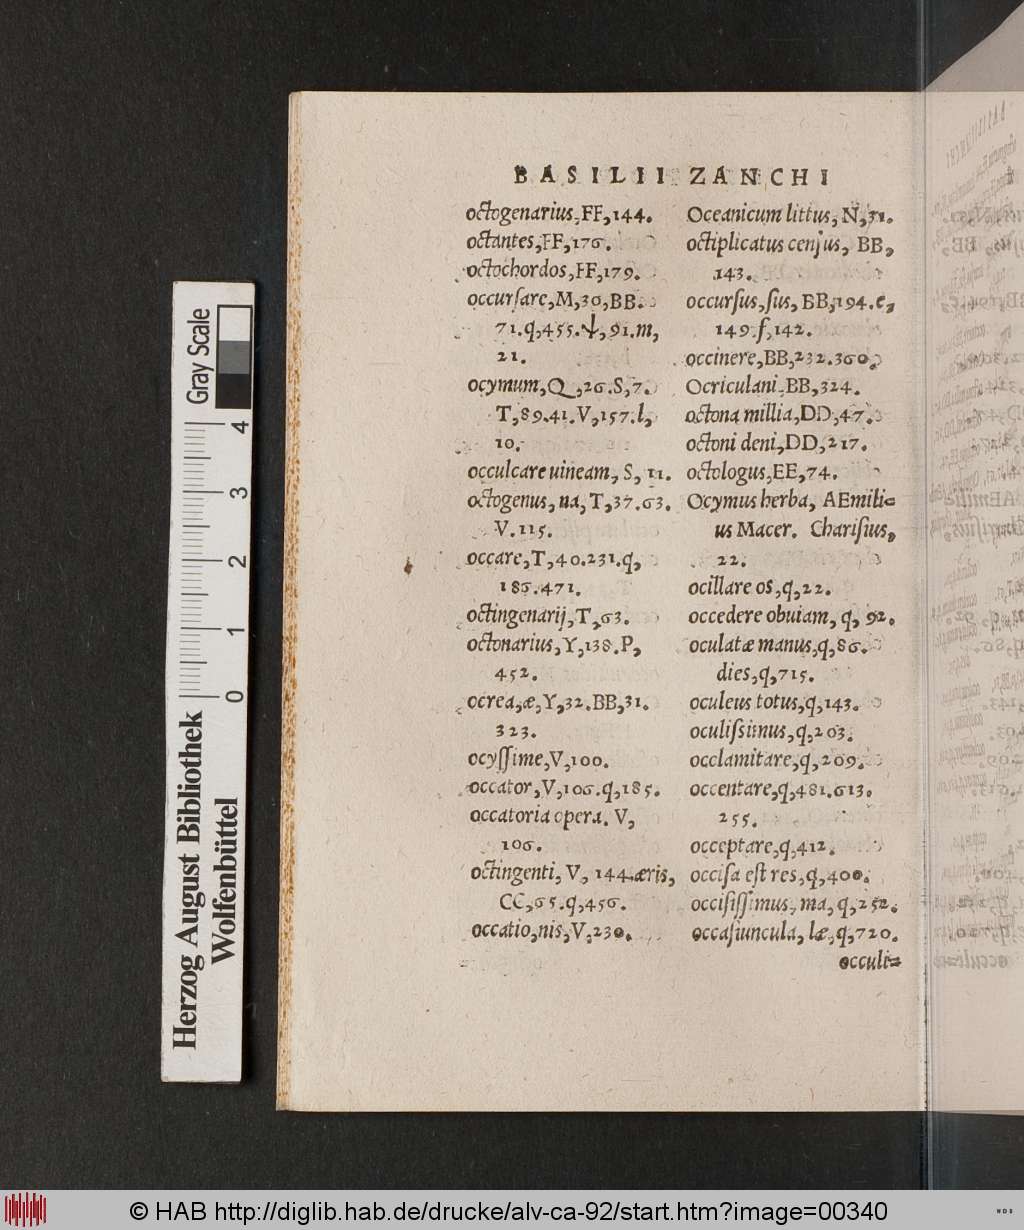 BASILII ZANCHI
octogenarius, FF, 144.
octantes, FF, 176.
octochordos, FF, 179.
occursare, M, 36, BB.
71. q, 455. ψ, 91. m,
21.
ocymum, Q, 26. S, 7.
T, 89. 41. V, 157. l,
10.
occulcare uineam, S, 11.
octogenus, na, T, 37. 63.
V. 115.
occare, T, 40. 231. q,
186. 471.
octingenarij, T, 63.
octonarius, Y, 138. P,
452.
ocrea, æ, Y, 32. BB, 31.
323.
ocyssime, V, 100.
occator, V, 106. q, 185.
occatoria opera. V,
106.
octingenti, V, 144. æris,
CC, 65. q, 456.
occatio, nis, V, 230.
Oceanicum littus, N, 31.
octiplicatus census, BB,
143.
occursus, sus, BB, 194. e,
149. f, 142.
occinere, BB, 232. 360.
Ocriculani, BB, 324.
octona millia, DD, 47.
octoni deni, DD, 217.
octologus, EE, 74.
Ocymus herba, AEmili=
us Macer. Charisius,
22.
ocillare os, q, 22.
occedere obuiam, q, 92.
oculatæ manus, q, 86.
dies, q, 715.
oculeus totus, q, 143.
oculissimus, q, 203.
occlamitare, q, 209.
occentare, q, 481. 613.
255.
occeptare, q, 412.
occisa est res, q, 400.
occisissimus, ma, q, 252.
occasiuncula, læ, q, 720.
occuli=
Gray Scale
4
3
2
1
0
Herzog August Bibliothek
Wolfenbüttel
© HAB http://diglib.hab.de/drucke/alv-ca-92/start.htm?image=00340
WDB